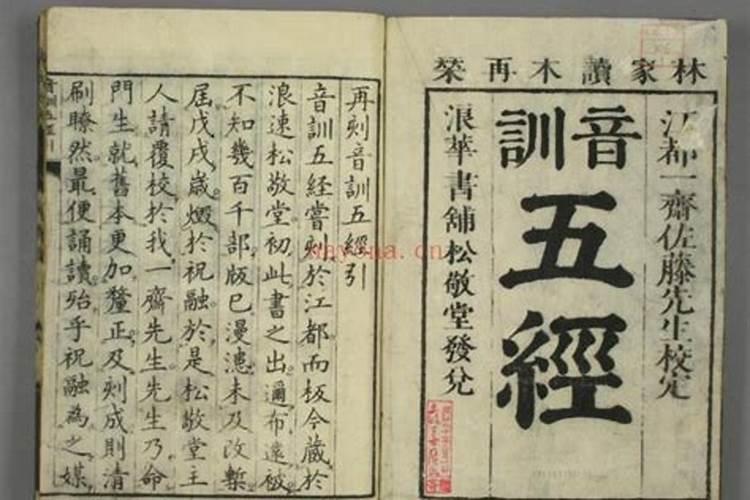 林家讀本再栞
江都一齋佐藤先生校定
音訓
五經
浪華書舖松敬堂發兌
再刻音訓五經引
音訓五経嘗刻於江都而板今藏於
浪速松敬堂初此書之出邇布遠被
不知幾百千部版已漫漶未及改槧
屆戊戌歲燬於祝融於是松敬堂主
人請覆校於我一齋先生先生乃命
門生就舊本更加釐正及刻成則清
刷瞭然最便誦讀殆乎祝融為之媒
nayona.cn